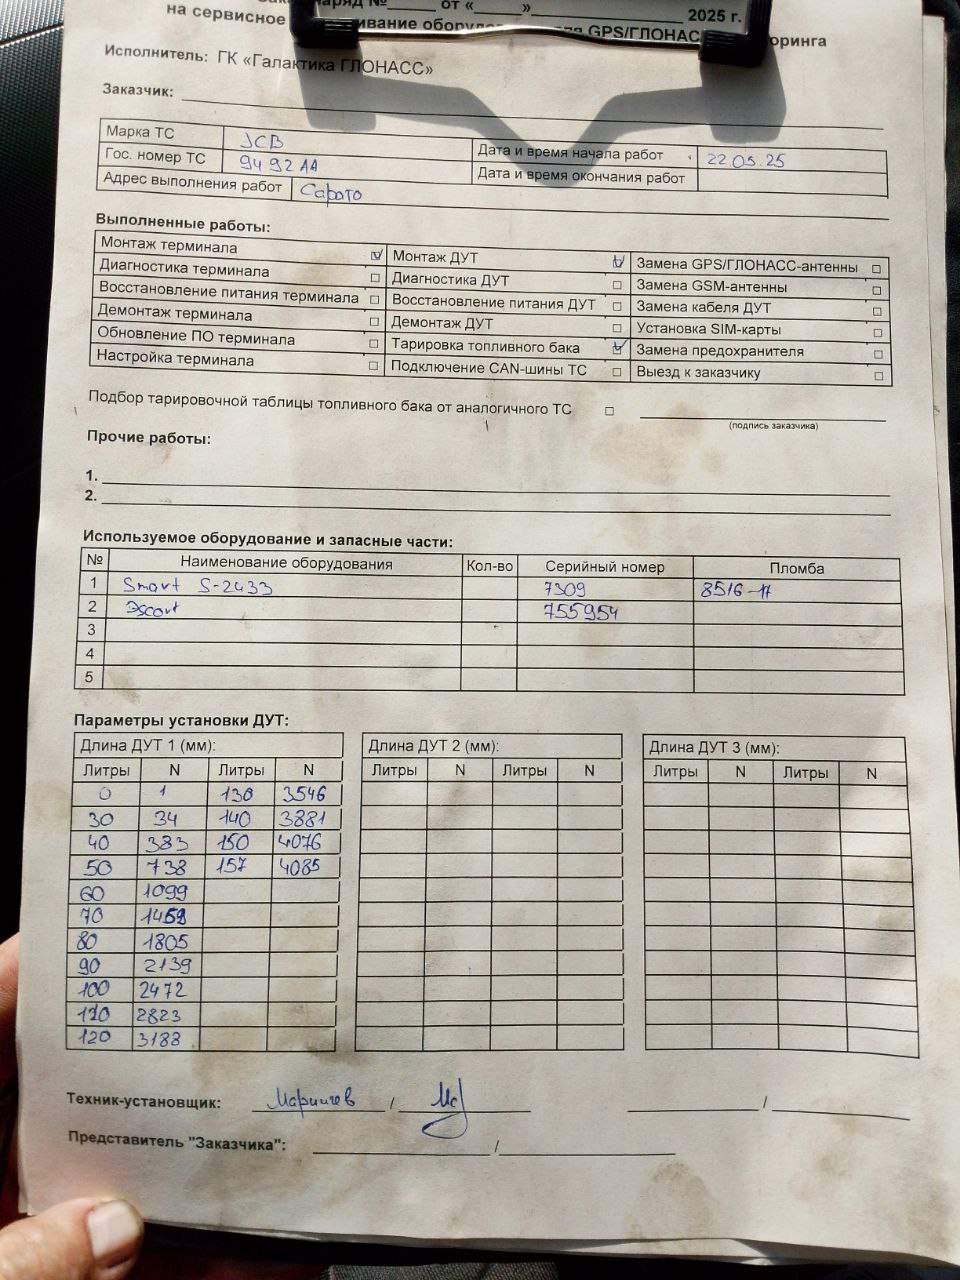 наряд № от « » 2025 г.
на сервисное GPS/ГЛОНАС
Исполнитель: ГК «Галактика ГЛОНАСС»
Заказчик:
Марка ТС JCB Дата и время начала работ 22 05.25
Гос. номер ТС 9492 АА Дата и время окончания работ
Адрес выполнения работ
Выполненные работы:
Монтаж терминала ☑ Монтаж ДУТ ☑ Замена GPS/ГЛОНАСС-антенны □
Диагностика терминала □ Диагностика ДУТ □ Замена GSM-антенны □
Восстановление питания терминала □ Восстановление питания ДУТ □ Замена кабеля ДУТ □
Демонтаж терминала □ Демонтаж ДУТ □ Установка SIM-карты □
Обновление ПО терминала □ Тарировка топливного бака ☑ Замена предохранителя □
Настройка терминала □ Подключение CAN-шины ТС □ Выезд к заказчику □
Подбор тарировочной таблицы топливного бака от аналогичного ТС □
(подпись заказчика)
Прочие работы:
1.
2.
Используемое оборудование и запасные части:
№ Наименование оборудования Кол-во Серийный номер Пломба
1 Smart S-2433 7309 8516-
2 Эscort 755954
3
4
5
Параметры установки ДУТ:
Длина ДУТ 1 (мм): Длина ДУТ 2 (мм): Длина ДУТ 3 (мм):
Литры N Литры N Литры N Литры N Литры N Литры N
0 1 130 3546
30 34 140 3881
40 383 150 4076
50 738 157 4085
60 1099
70 1459
80 1805
90 2139
100 2472
110 2823
120 3188
Техник-установщик: / /
Представитель "Заказчика": /